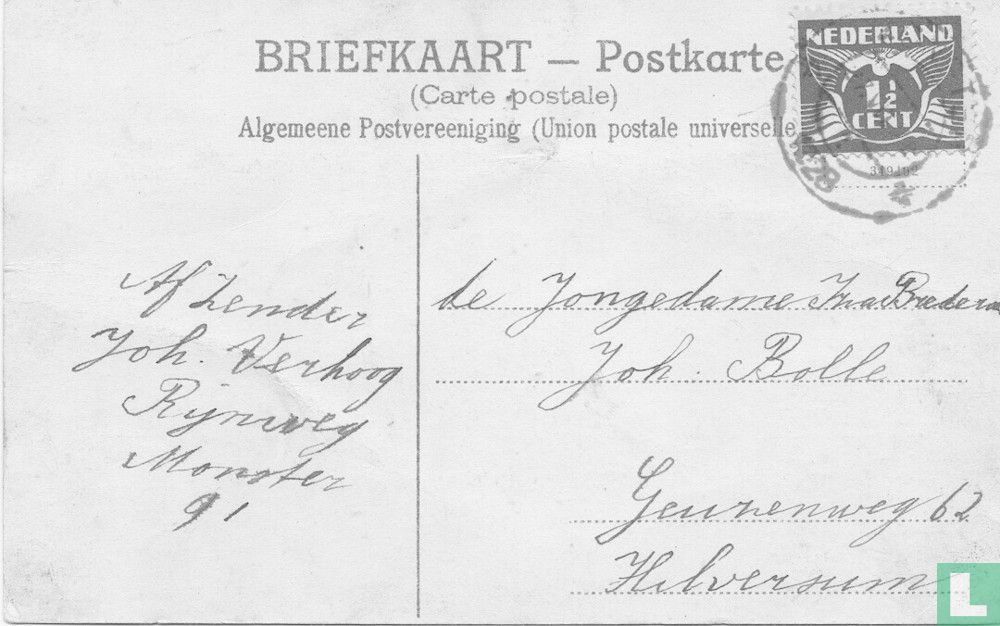 BRIEFKAART — Postkarte
(Carte postale)
Algemeene Postvereeniging (Union postale universelle)
NEDERLAND
1½
CENT
349492
Afzender
Joh. Verhoog
Rijnweg
Monster
91
de Jongedame
Joh. Bolle
Geuzenweg 62
Hilversum
L